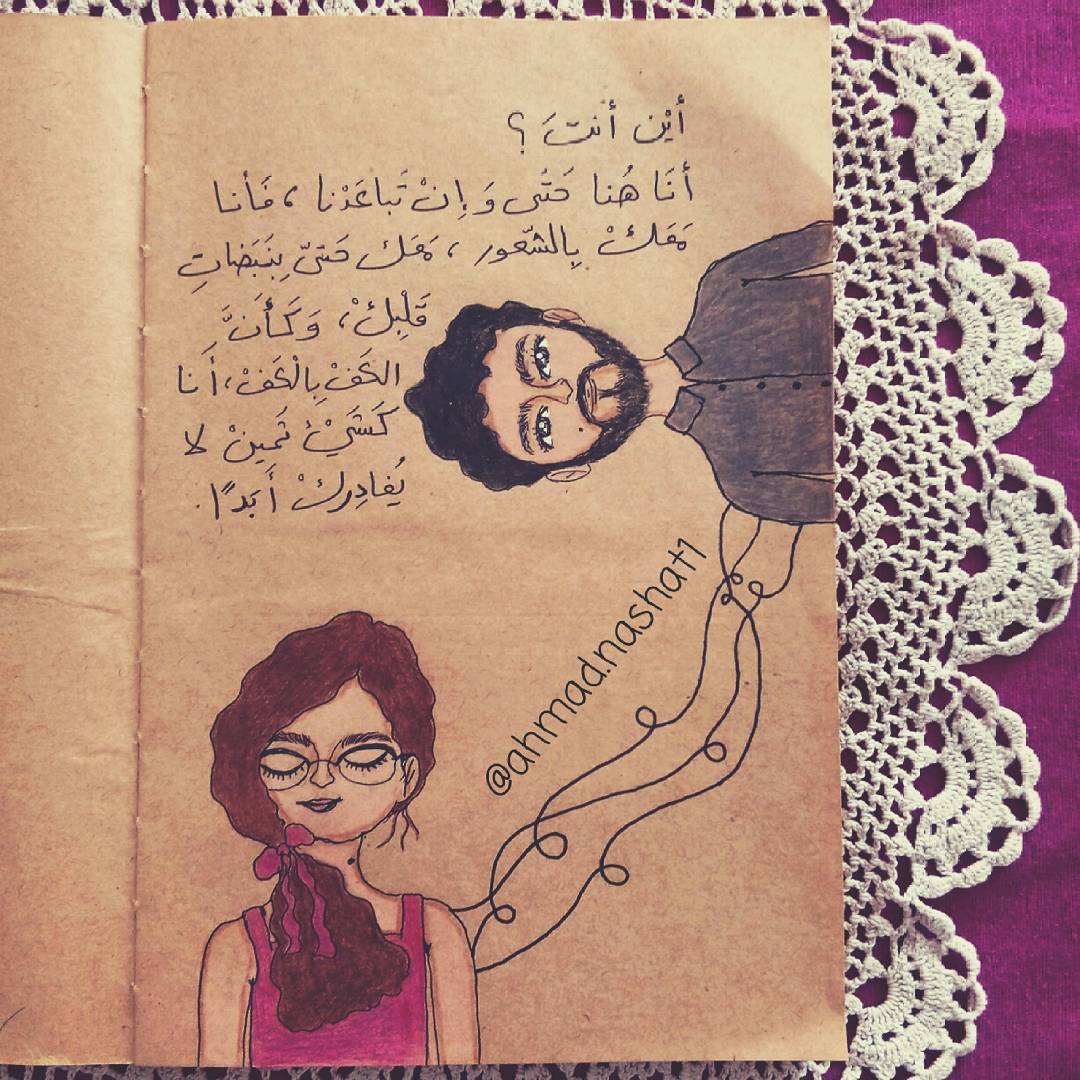 أيْن أنتَ ؟
أنَا هُنا حَتّى وَإنْ تَباعَدْنا ، فَأنا
مَعَكْ بِالشّعور ، مَعَك حَتىّ بِنَبَضاتِ
قَلْبِكْ ، وَكَأنَّ
الكَفْ بِالْكَفْ ، أَنا
كَشَيْءْ ثَمينْ لا
يُغادِركْ أَبَدًا.
@ahmad.nashat1